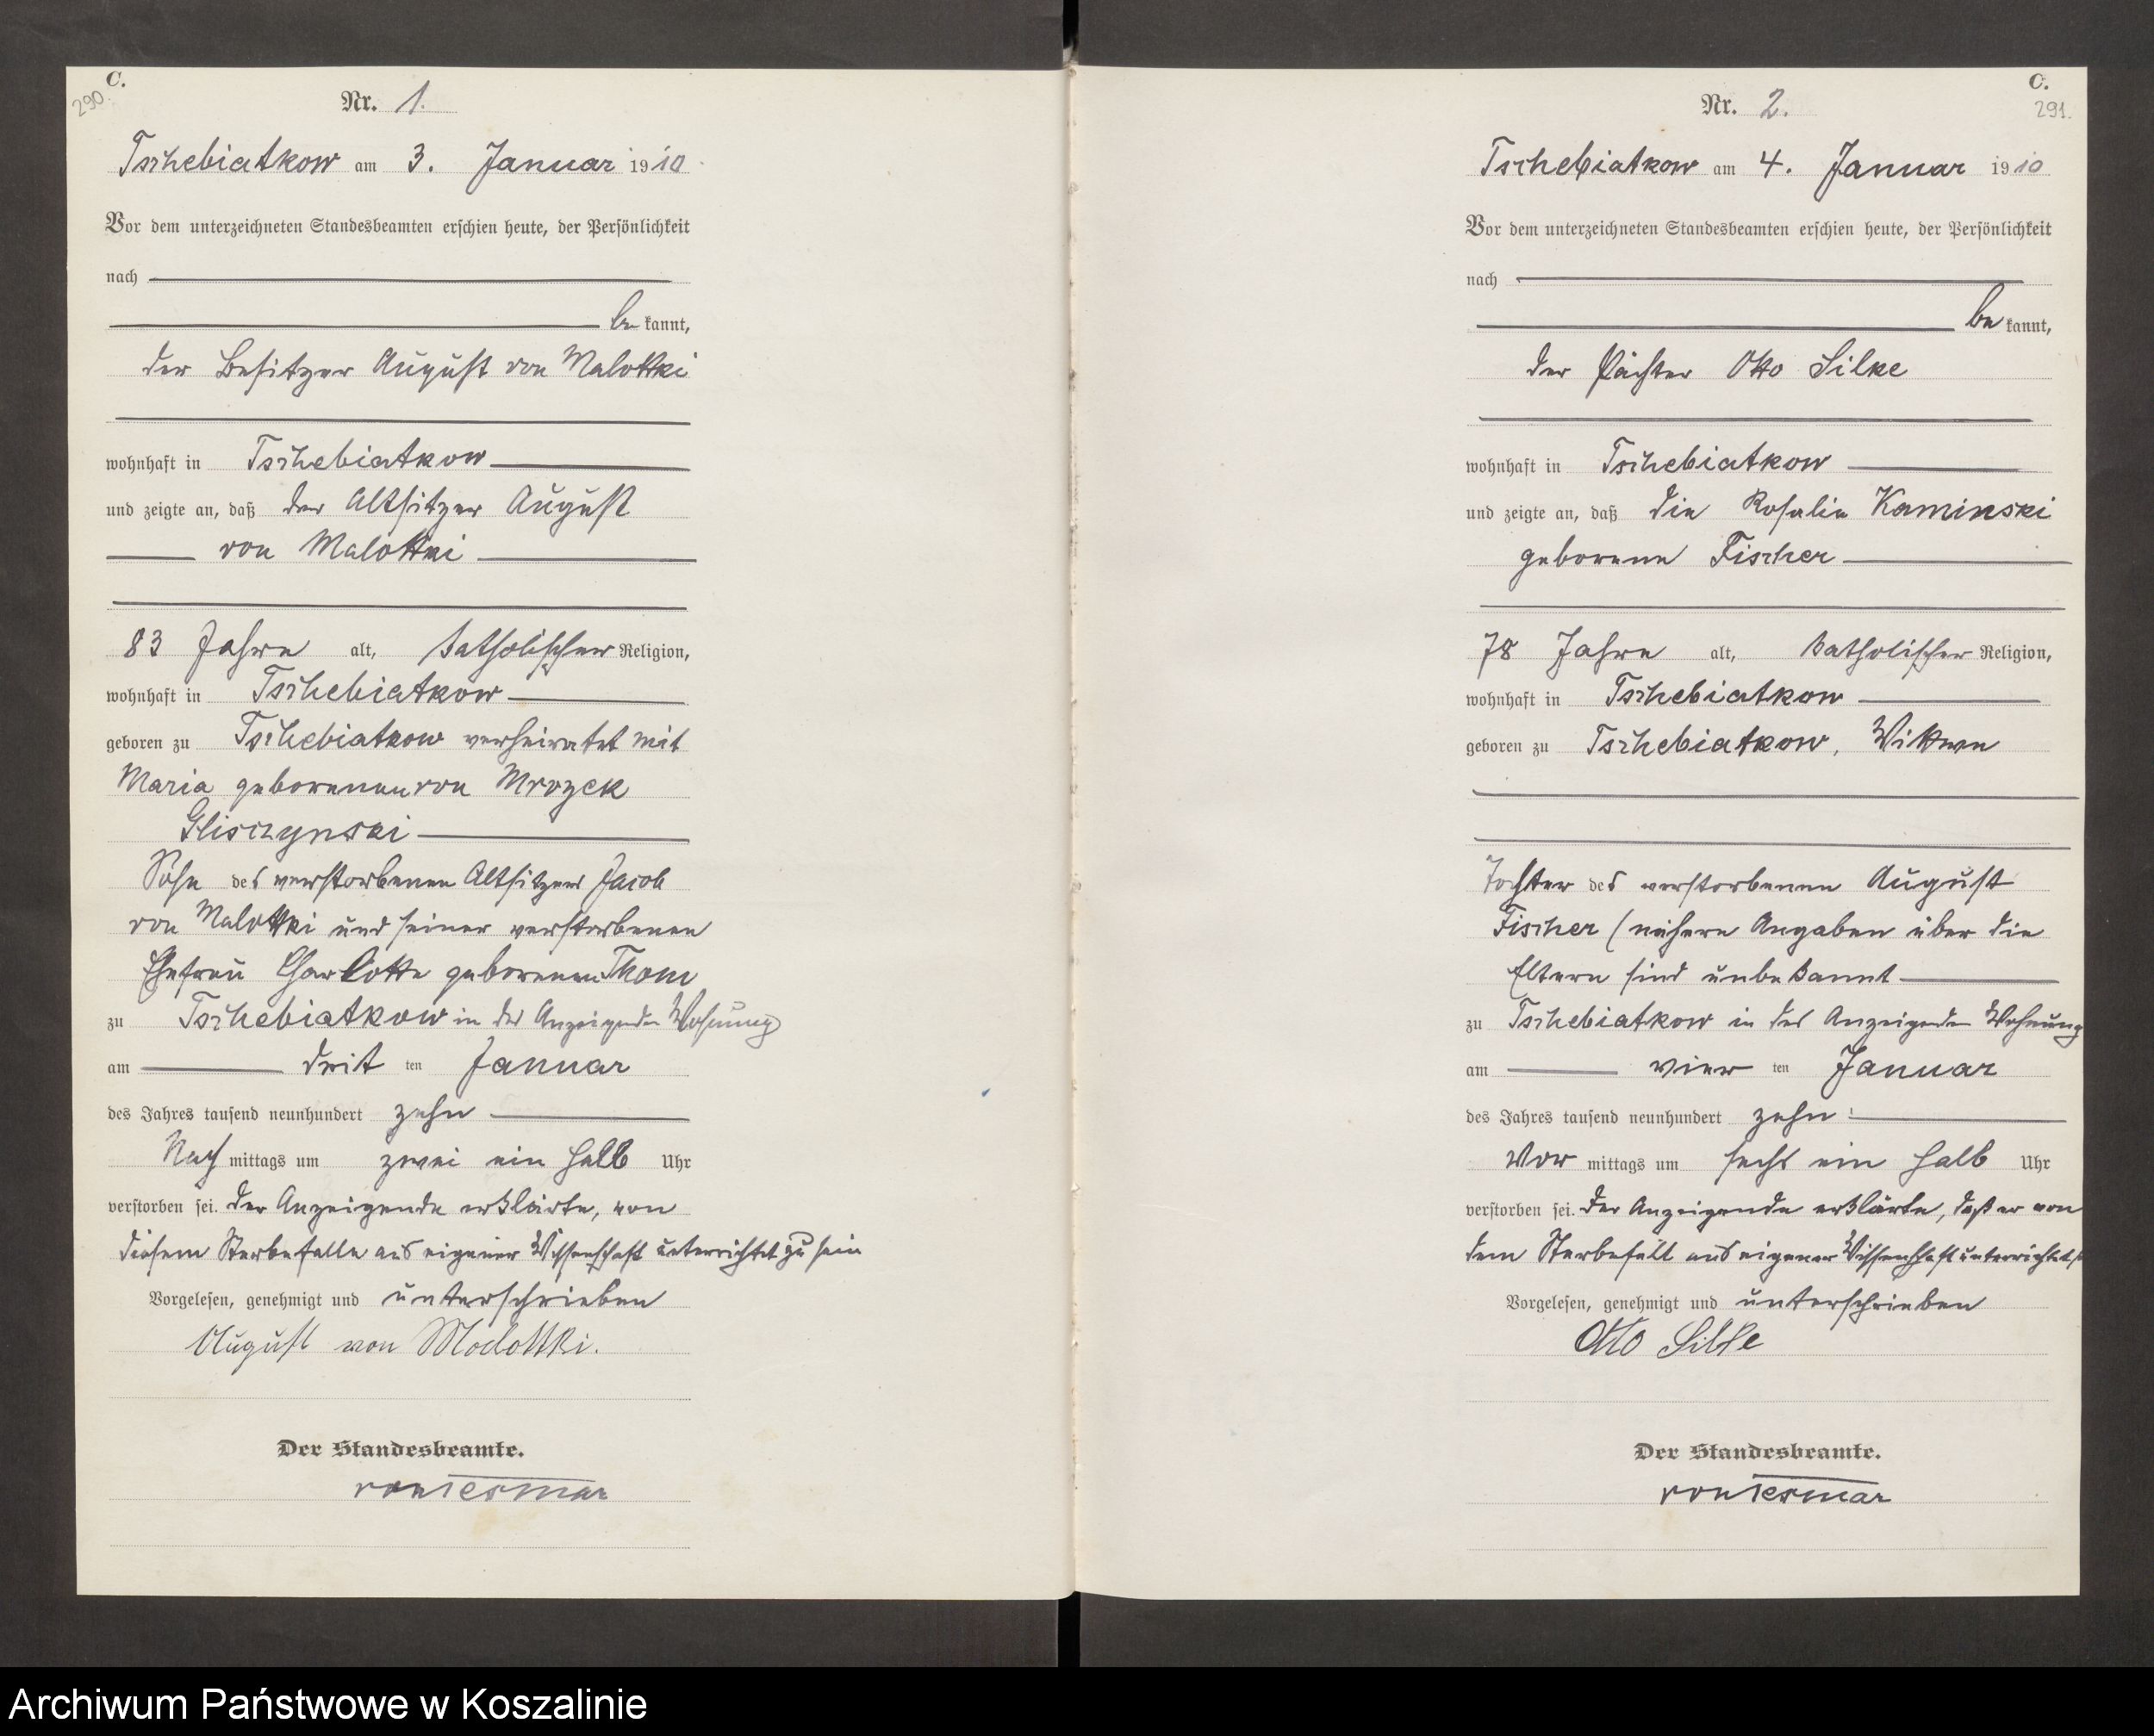 C.
290.
Nr. 1.
Tschebiatkow am 3. Januar 1910
Vor dem unterzeichneten Standesbeamten erschien heute, der Persönlichkeit
nach
be kannt,
der Besitzer August von Malottki
wohnhaft in Tschebiatkow
und zeigte an, daß der Altsitzer August
von Malottki
83 Jahre alt, katholischer Religion,
wohnhaft in Tschebiatkow
geboren zu Tschebiatkow verheiratet mit
Maria geborenen von Mrozek
Gliszynski
Sohn des verstorbenen Altsitzers Jacob
von Malottki und seiner verstorbenen
Ehefrau Charlotte geborenen Thom
zu Tschebiatkow in des Anzeigenden Wohnung
am drit ten Januar
des Jahres tausend neunhundert zehn
Nach mittags um zwei ein halb Uhr
verstorben sei. Der Anzeigende erklärte, von
diesem Sterbefalle aus eigener Wissenschaft unterrichtet zu sein
Vorgelesen, genehmigt und unterschrieben
August von Malottki.
Der Standesbeamte.
von Tesmar
C.
291.
Nr. 2.
Tschebiatkow am 4. Januar 1910
Vor dem unterzeichneten Standesbeamten erschien heute, der Persönlichkeit
nach
be kannt,
der Pächter Otto Silke
wohnhaft in Tschebiatkow
und zeigte an, daß die Rosalie Kaminski
geborene Fischer
78 Jahre alt, katholischer Religion,
wohnhaft in Tschebiatkow
geboren zu Tschebiatkow, Wittwe
Tochter des verstorbenen August
Fischer (nähere Angaben über die
Eltern sind unbekannt
zu Tschebiatkow in des Anzeigenden Wohnung
am vier ten Januar
des Jahres tausend neunhundert zehn
Vor mittags um sechs ein halb Uhr
verstorben sei. Der Anzeigende erklärte, daß er von
dem Sterbefall aus eigener Wissenschaft unterrichtet
Vorgelesen, genehmigt und unterschrieben
Otto Silke
Der Standesbeamte.
von Tesmar
Archiwum Państwowe w Koszalinie